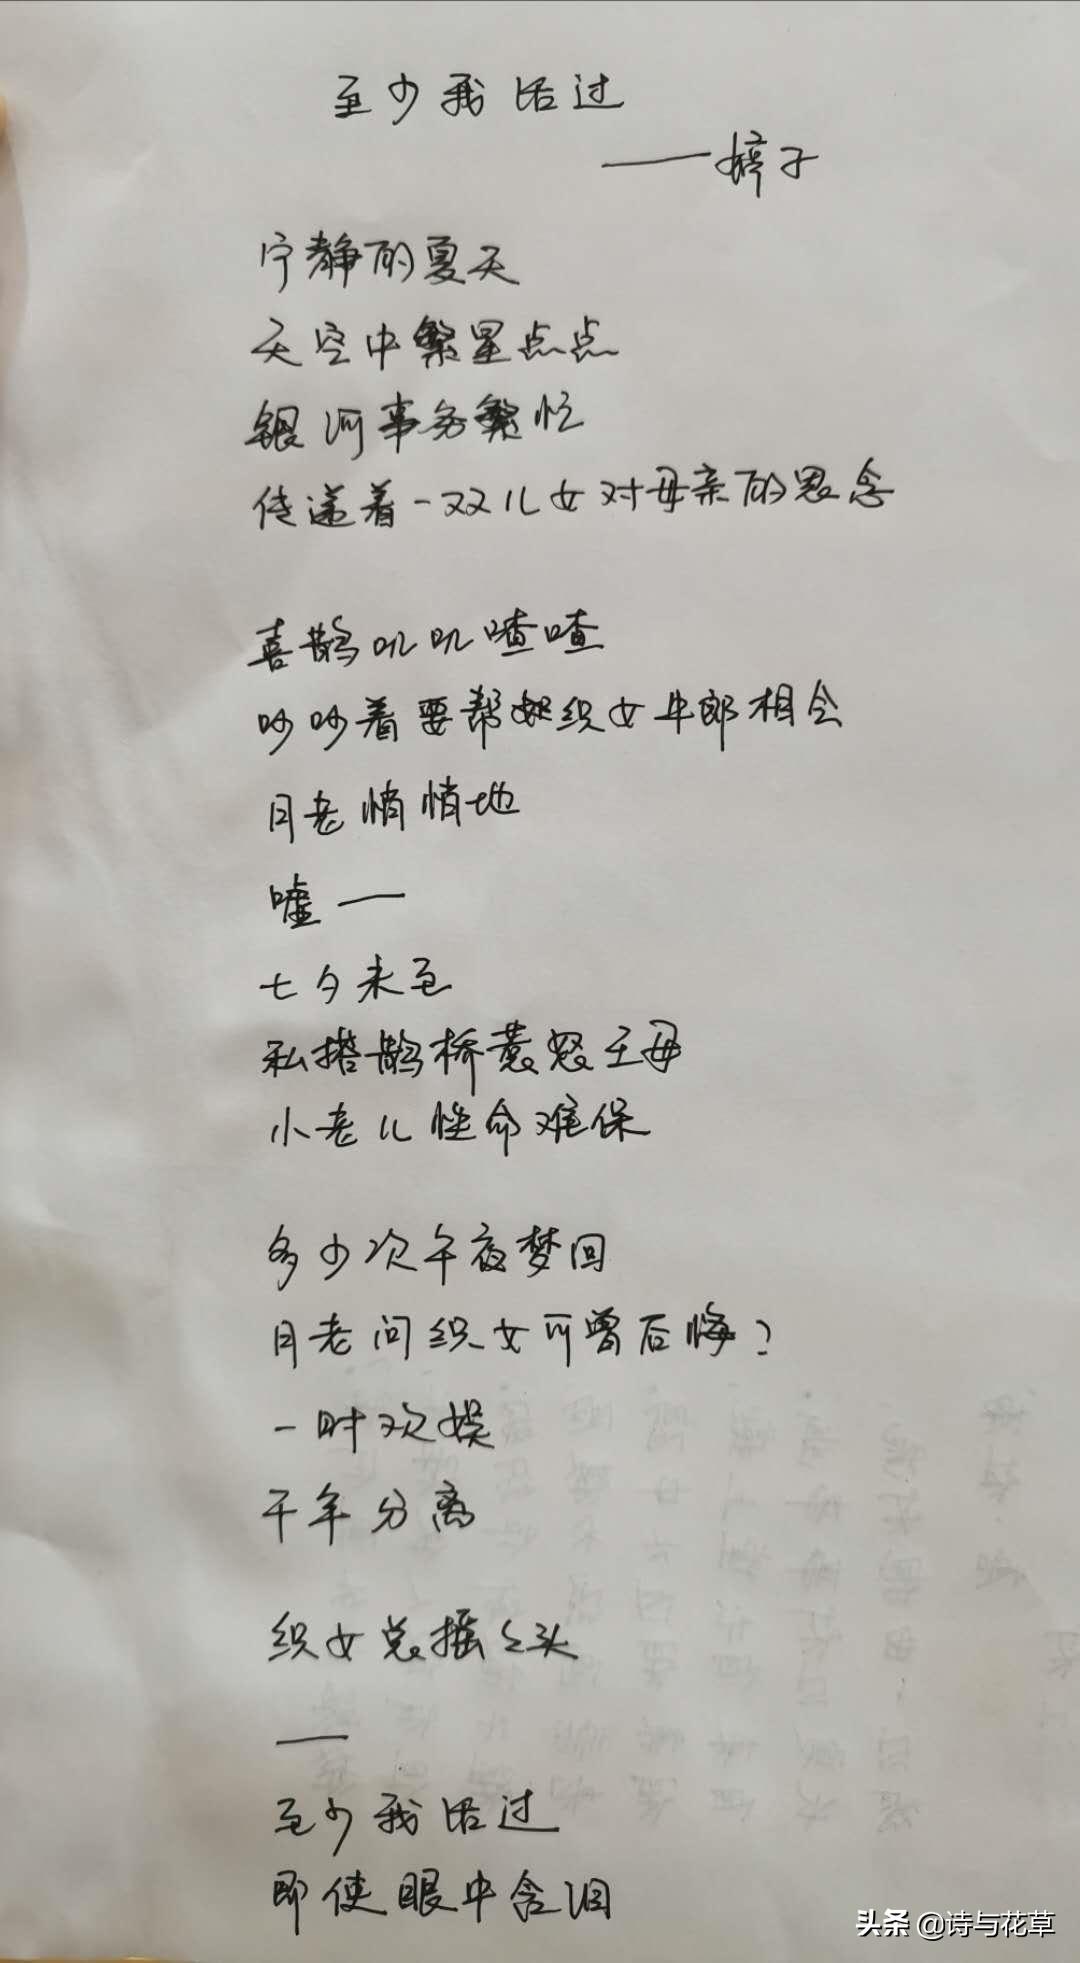 至少我活过
——婷子
宁静的夏天
天空中繁星点点
银河事务繁忙
传递着一双儿女对母亲的思念
喜鹊叽叽喳喳
吵吵着要帮织女牛郎相会
月老悄悄地
嘘——
七夕未至
私搭鹊桥惹怒王母
小老儿性命难保
多少次午夜梦回
月老问织女可曾后悔？
一时欢娱
千年分离
织女总摇摇头
——
至少我活过
即使眼中含泪
头条 @诗与花草